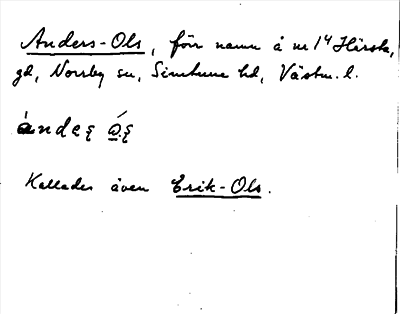 Anders-Ols, förr namn å nr 1⁴ Härsta,
gd, Norrby sn, Simtuna hd, Västm. l.
àndeʂ ó̱.ʂ
Kallades även Erik-Ols.